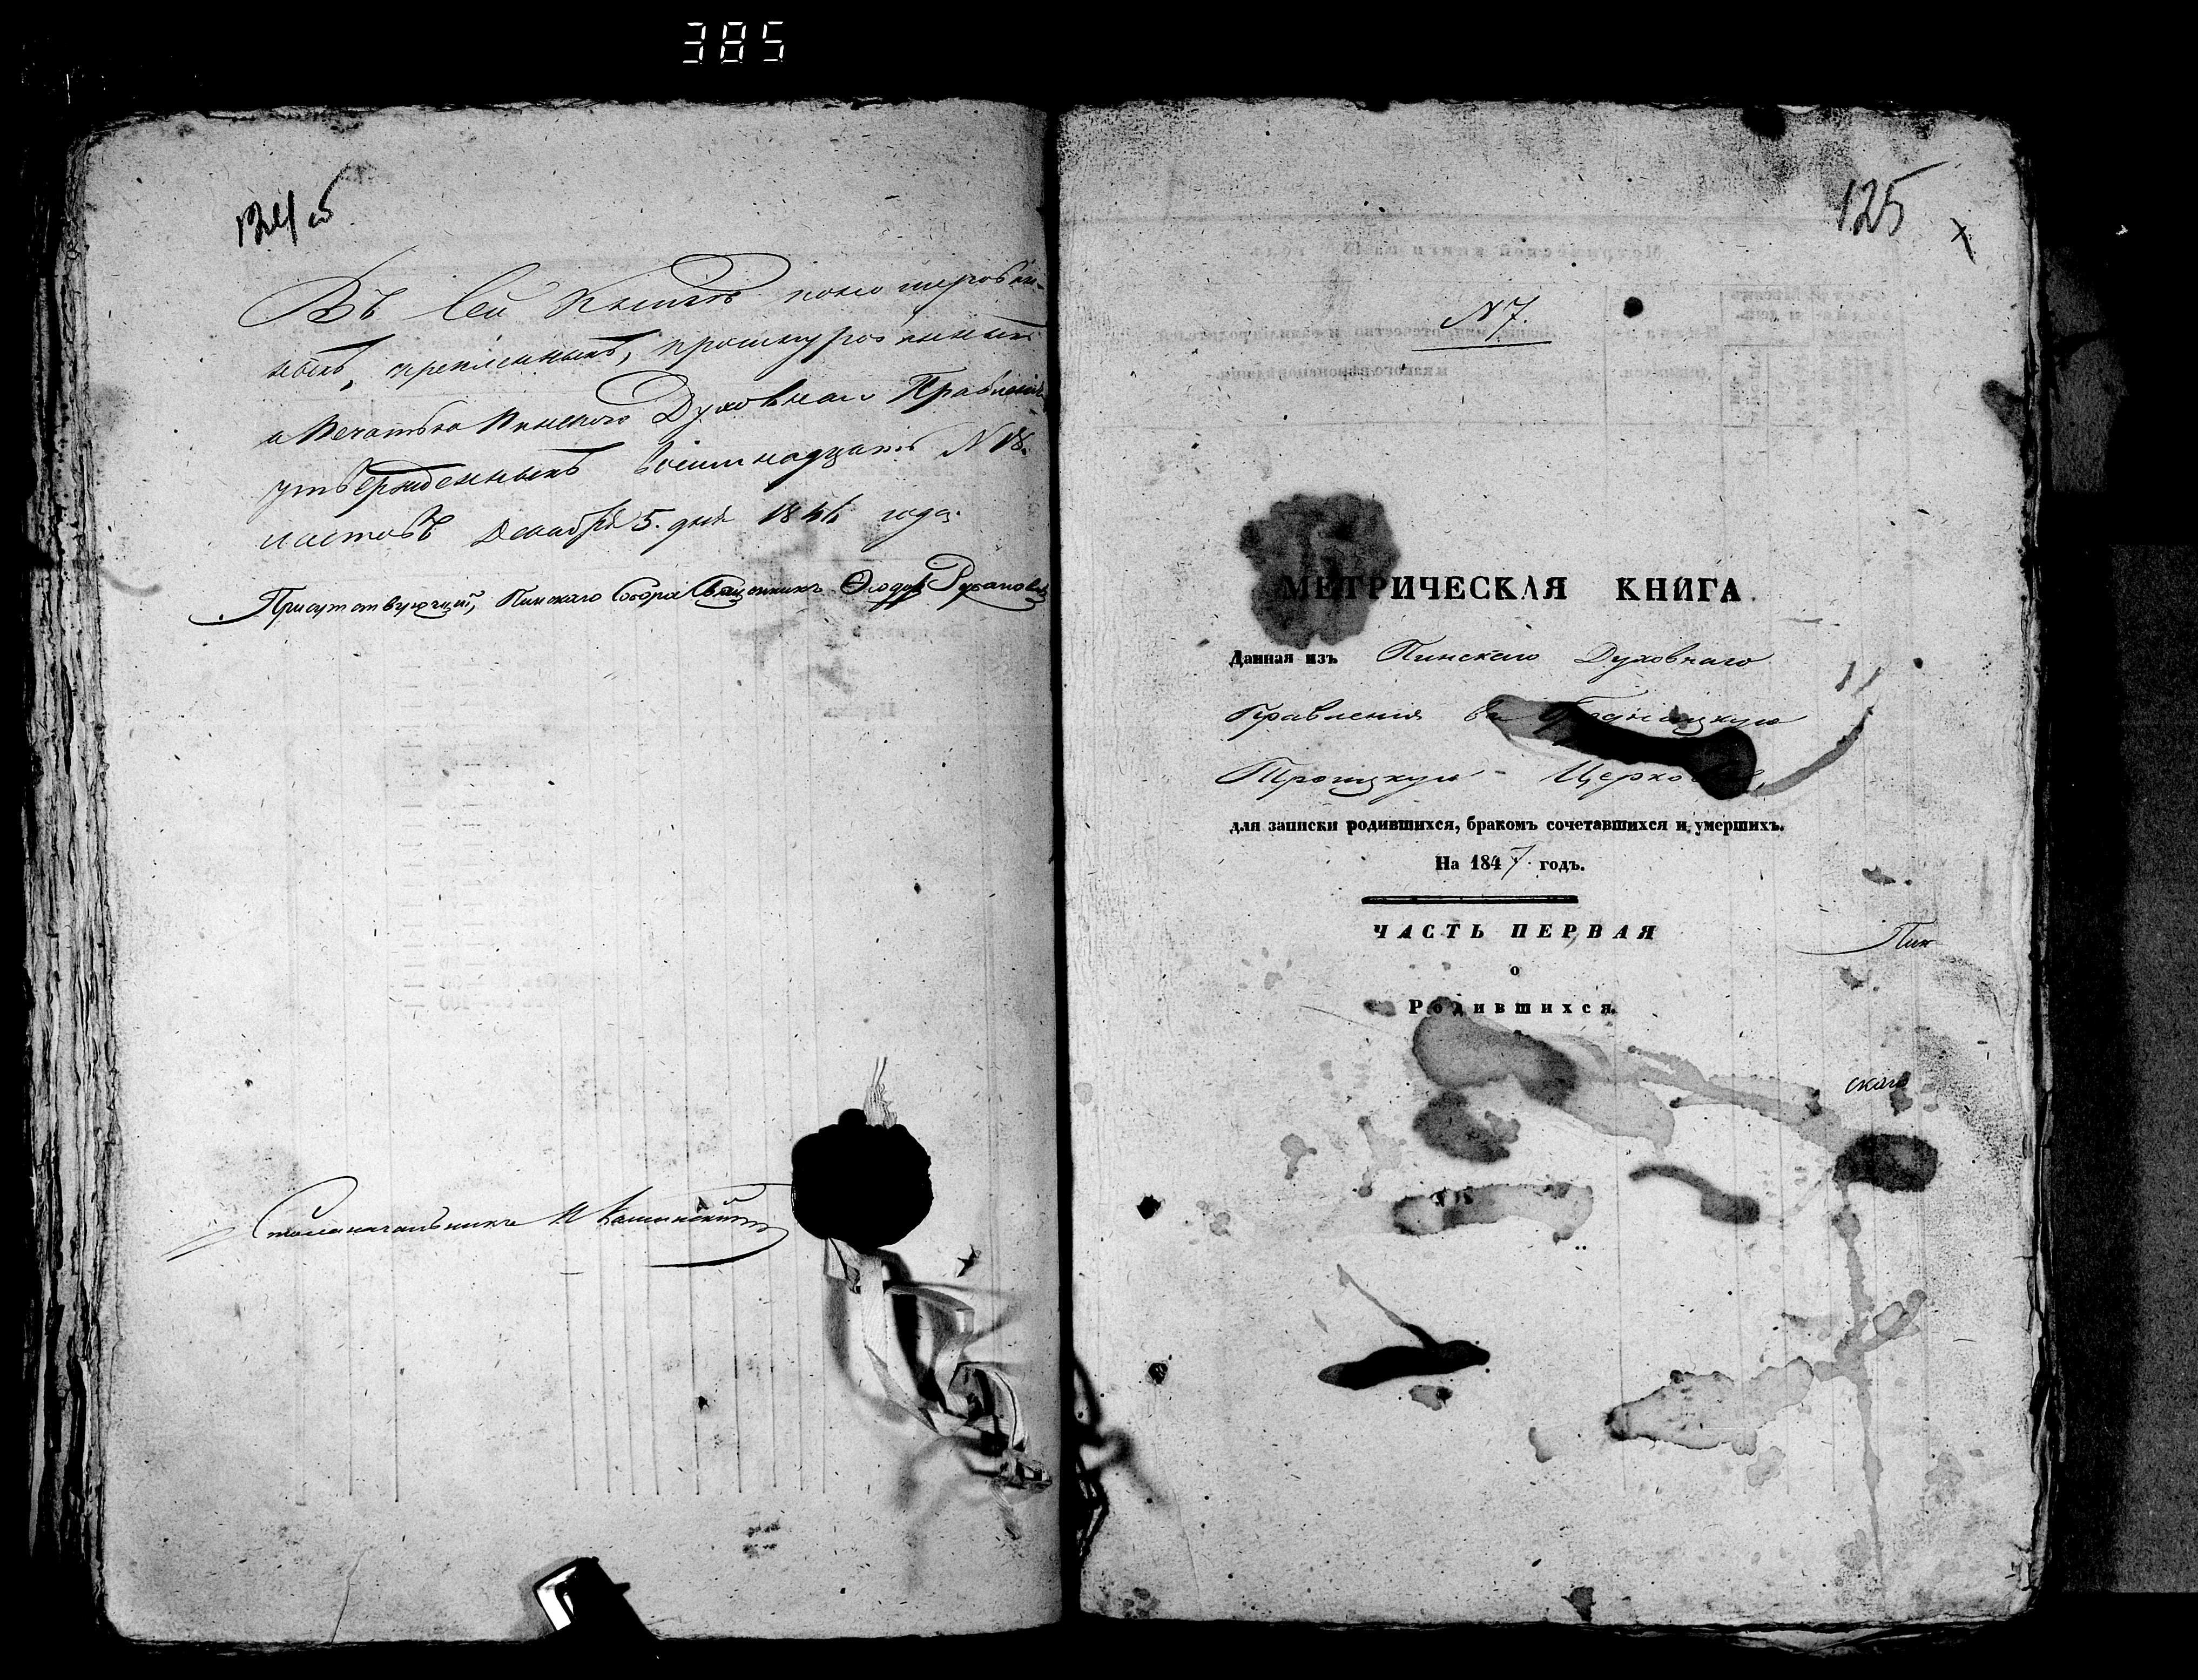 385
124 об
Въ сей книгѣ нономерован-
ныхъ, скрепленныхъ, прошнурованныхъ
и Печатью Пинского Духовнаго Правленія
утвержденныхъ восемнадцать N 18.
листовъ Декабря 5. дня 1846 года.
Присутствующій, Пинскаго Собора Священникъ Ѳеодоръ
Столоначальникъ
125
N 7.
МЕТРИЧЕСКАЯ КНИГА
Данная изъ Пинскаго Духовнаго
Правленія въ
Троицкую Церковь,
для записки родившихся, бракомъ сочетавшихся и умершихъ.
На 1847 годъ.
ЧАСТЬ ПЕРВАЯ
Пин
о
Родившихся.
скаго